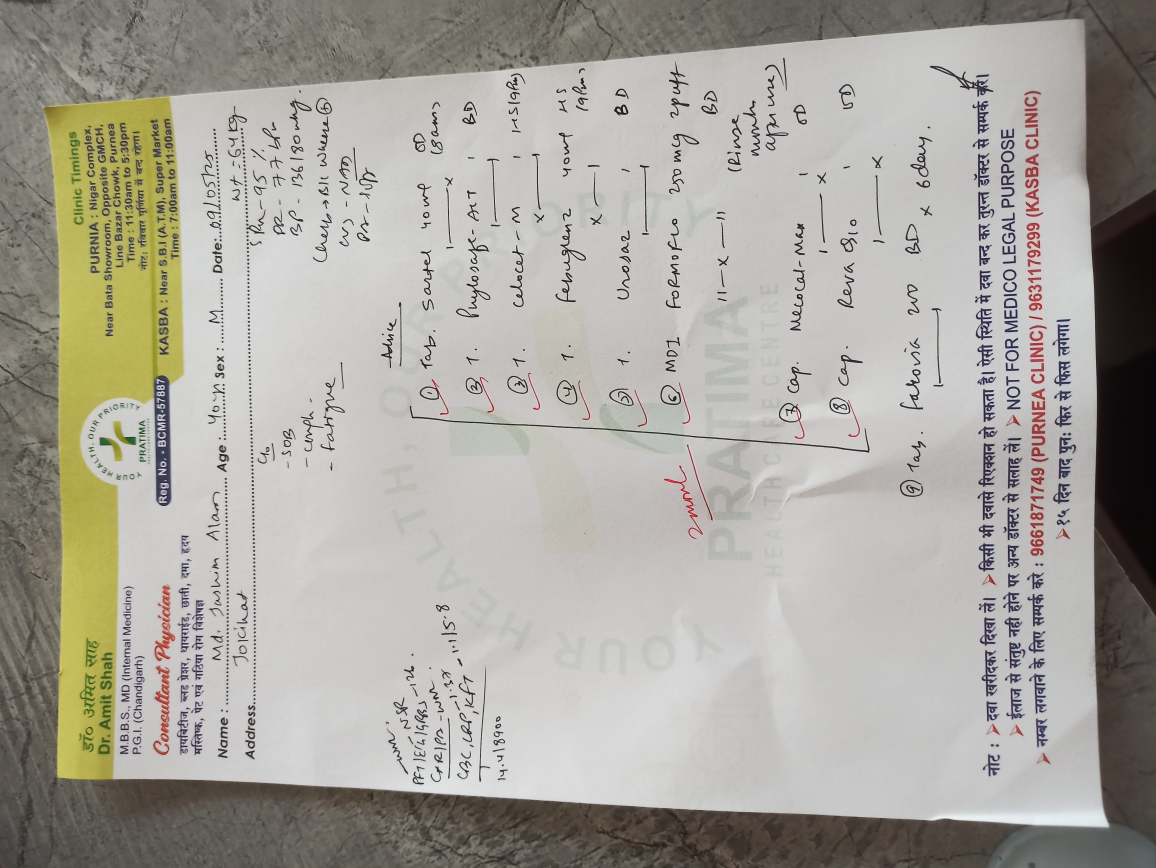 डॉ० अमित साह
Dr. Amit Shah
M.B.B.S., MD (Internal Medicine)
P.G.I. (Chandigarh)
Consultant Physician
डायबिटीज, ब्लड प्रेशर, थायराईड, छाती, दमा, हृदय
मस्तिष्क, पेट एवं गठिया रोग विशेषज्ञ
YOUR HEALTH, OUR PRIORITY
PRATIMA
Reg. No. - BCMR-57887
Clinic Timings
PURNIA : Nigar Complex,
Near Bata Showroom, Opposite GMCH,
Line Bazar Chowk, Purnea
Time : 11:30am to 5:30pm
नोट: रविवार पूर्णिया में बन्द रहेगा।
KASBA : Near S.B.I (A.T.M), Super Market
Time : 7:00am to 11:00am
Name : Md. Jaswim Alam Age : 40yr Sex : M Date: 9/05/25
Address Jokihat Wt = 64kg
C/o
- SOB
- cough.
- fatigue
SPO2 - 95%
PR - 77 b/m
BP - 136/80 mmHg.
Chest - B/L wheeze
CVS - NAD
Advice
① Tab. Sartel 40mg OD (8am)
1——x
② T. Phylosafe-ALT 1 BD
1——1
③ T. Celocet M 1 HS (9Pm)
x——1
④ T. Febuglenz 40mg HS (9Pm)
x——1
⑤ T. Urosaz 1 BD
1——1
⑥ MDI Formoflo 250 mcg 2puff BD
11—x—11 (Rinse mouth after use)
⑦ Cap. Melocal-max 1 OD
1——x
⑧ Cap. Reva Q10 1 OD
1——x
2 month
⑨ Tab. 200 BD
1——1 x 6 day.
CBC, CRP, KFT
14.4/8900
YOUR HEALTH, OUR PRIORITY
PRATIMA
HEALTH CARE CENTRE
नोट : ➤ दवा खरीदकर दिखा लें। ➤ किसी भी दवासे रिएक्शन हो सकता है। ऐसी स्थिति में दवा बन्द कर तुरन्त डॉक्टर से सम्पर्क करें।
➤ ईलाज से संतुष्ट नही होने पर अन्य डॉक्टर से सलाह लें। ➤ NOT FOR MEDICO LEGAL PURPOSE
➤ नम्बर लगवाने के लिए सम्पर्क करे : 9661871749 (PURNEA CLINIC) / 9631179299 (KASBA CLINIC)
➤ १५ दिन बाद पुनः फिर से फिस लगेगा।